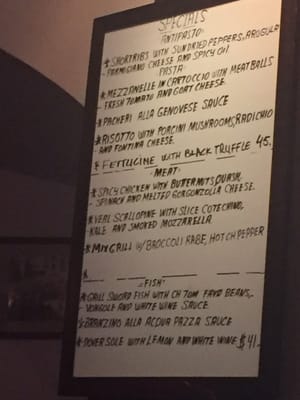 SPECIALS
ANTIPASTO:
* SHORTRIBS WITH SUNDRIED PEPPERS, ARUGULA
PARMIGIANO CHEESE AND SPICY OIL
PASTA:
* MEZZANELLE IN CARTOCCIO WITH MEATBALLS
FRESH TOMATO AND GOAT CHEESE.
* PACHERI ALLA GENOVESE SAUCE
* RISOTTO WITH PORCINI MUSHROOMS, RADICHIO
AND FONTINA CHEESE.
* FETTUCINE WITH BLACK TRUFFLE 45.
MEAT:
* SPICY CHICKEN WITH BUTTERNUT SQUASH,
- SPINACH AND MELTED GORGONZOLLA CHEESE.
* VEAL SCALLOPINE WITH SLICE COTECHINO,
KALE AND SMOKED MOZZARELLA
* MIX GRILL W/ BROCCOLI RABE, HOT CH PEPPER
*
FISH:
* GRILL SWORD FISH WITH CH TOM FAVA BEANS,
- VONGOLE AND WHITE WINE SAUCE
* BRANZINO ALLA ACQUA PAZZA SAUCE
* DOVER SOLE WITH LEMON AND WHITE WINE $41.